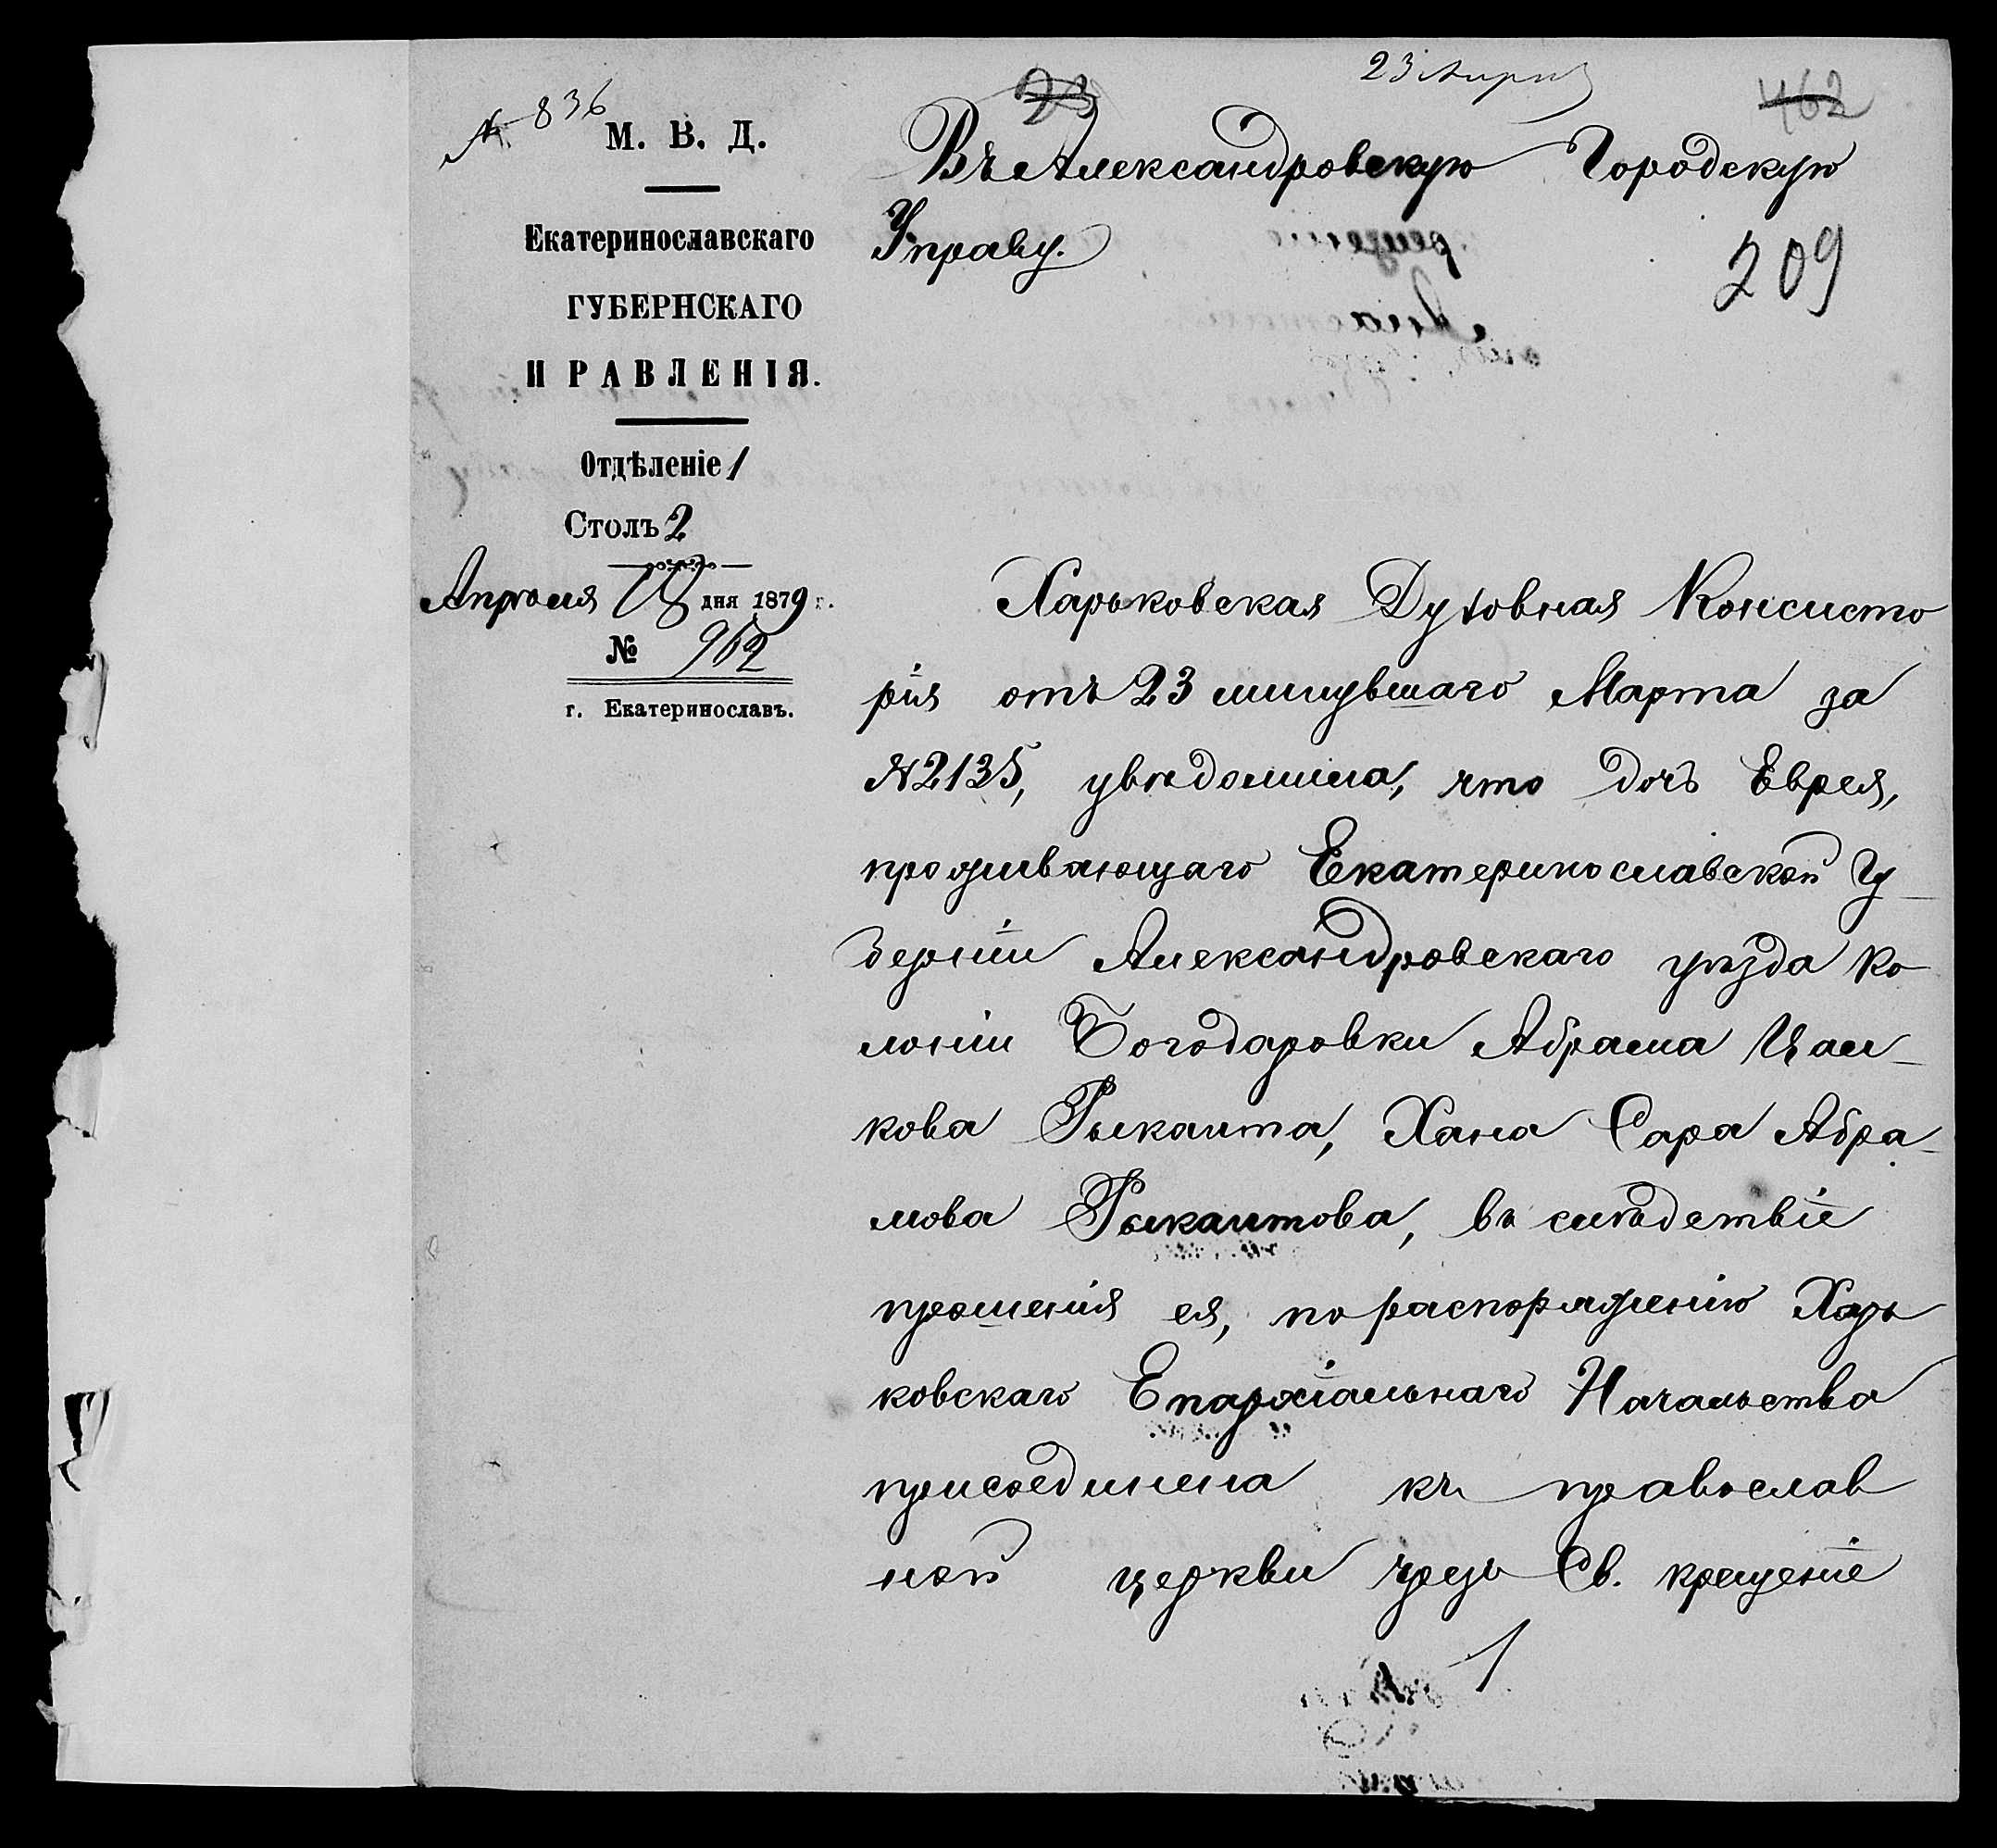 № 836
23 Апрѣ
462
М. В. Д.
Екатеринославскаго
ГУБЕРНСКАГО
ПРАВЛЕНІЯ.
Отдѣленіе 1
Столъ 2
Апрѣля 18 дня 1879 г.
№ 962
г. Екатеринославъ.
Въ Александровскую Городскую
Управу.
209
Харьковская Духовная Консисто
рія отъ 23 минувшаго Марта за
№ 2135, увѣдомила, что дочь Еврея,
проживающаго Екатеринославской Гу-
берніи Александровскаго уѣзда ко-
лоніи Богодаровки Абрама Цал-
кова Рыкалта, Хана Сара Абра-
мова Рыкалтова, въ слѣдствіе
прошенія ея, по распоряженію Харь
ковскаго Епархіальнаго Начальства
присоединена къ православ
ной церкви чрезъ Св. крещеніе